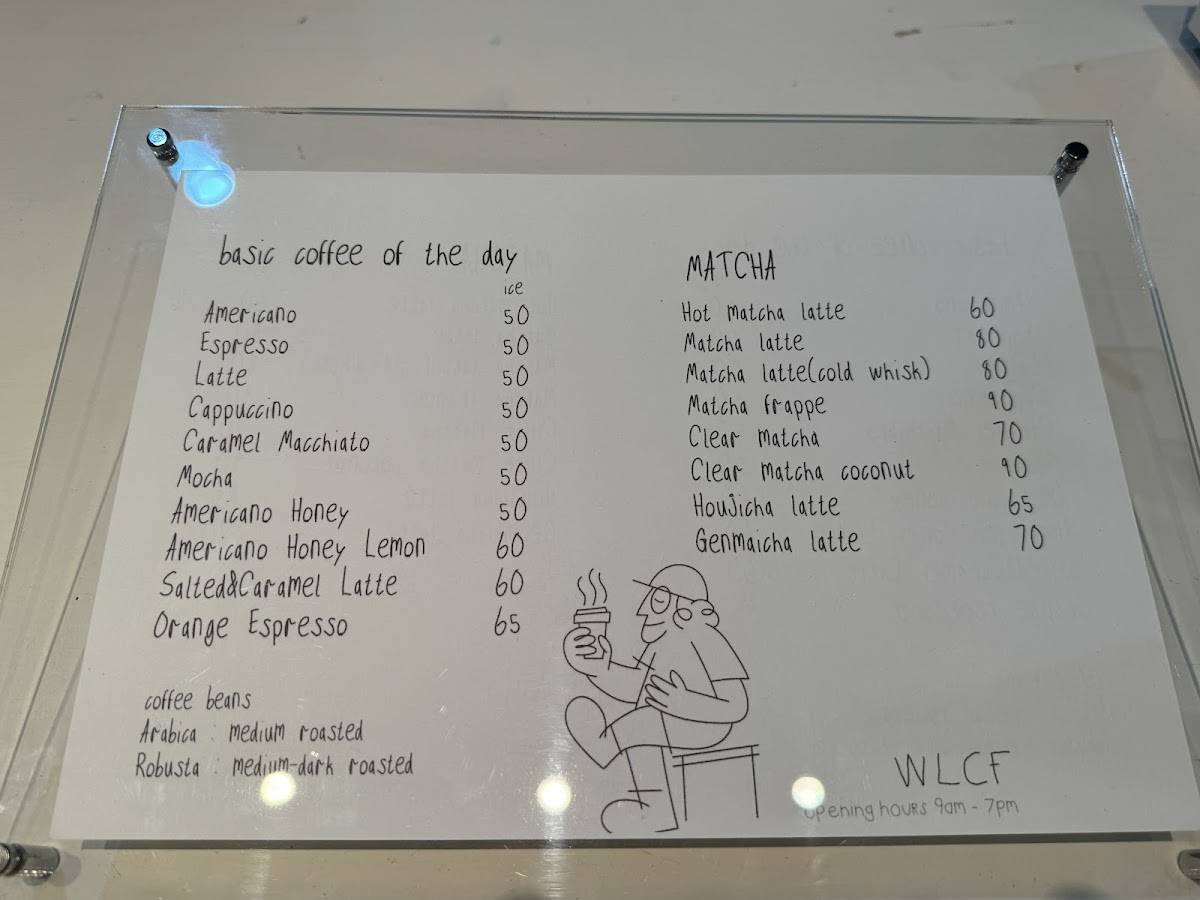 basic coffee of the day
ice
Americano 50
Espresso 50
Latte 50
Cappuccino 50
Caramel Macchiato 50
Mocha 50
Americano Honey 50
Americano Honey Lemon 60
Salted&Caramel Latte 60
Orange Espresso 65
coffee beans
Arabica : medium roasted
Robusta : medium-dark roasted
MATCHA
Hot matcha latte 60
Matcha latte 80
Matcha latte(cold whisk) 80
Matcha frappe 90
Clear matcha 70
Clear matcha coconut 90
Houjicha latte 65
Genmaicha latte 70
WLCF
opening hours 9am - 7pm